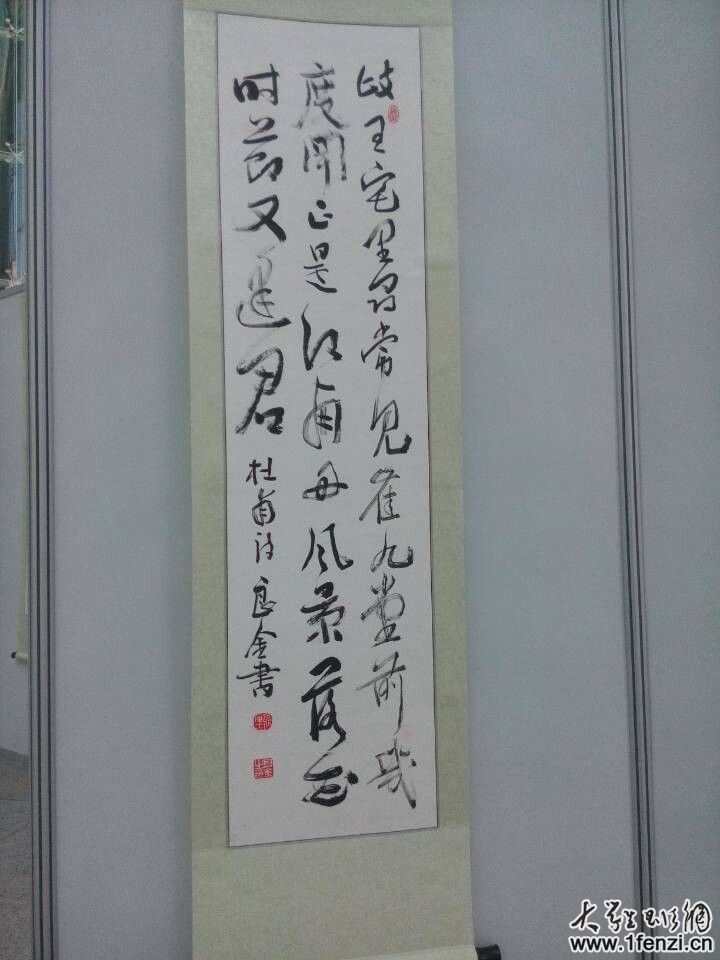 岐王宅里寻常见崔九堂前几
度闻正是江南好风景落花
时节又逢君
杜甫诗良金書
www.1fenzi.cn